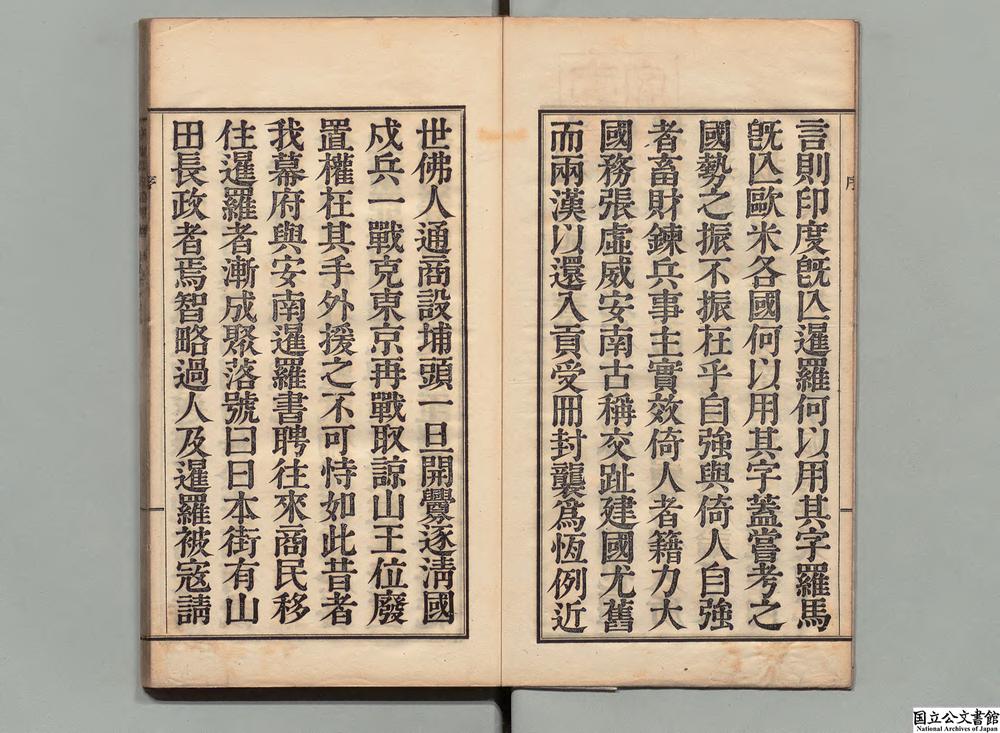 序
言則印度旣亾暹羅何以用其字羅馬
旣亾歐米各國何以用其字蓋嘗考之
國勢之振不振在乎自強與倚人自強
者畜財鍊兵事主實效倚人者籍力大
國務張虛威安南古稱交趾建國尤舊
而兩漢以還入貢受冊封襲爲恆例近
世佛人通商設埔頭一旦開釁逐淸國
戍兵一戰克東京再戰取諒山王位廢
置權在其手外援之不可恃如此昔者
我幕府與安南暹羅書聘往來商民移
住暹羅者漸成聚落號曰日本街有山
田長政者焉智略過人及暹羅被寇請
序
国立公文書館
National Archives of Japan